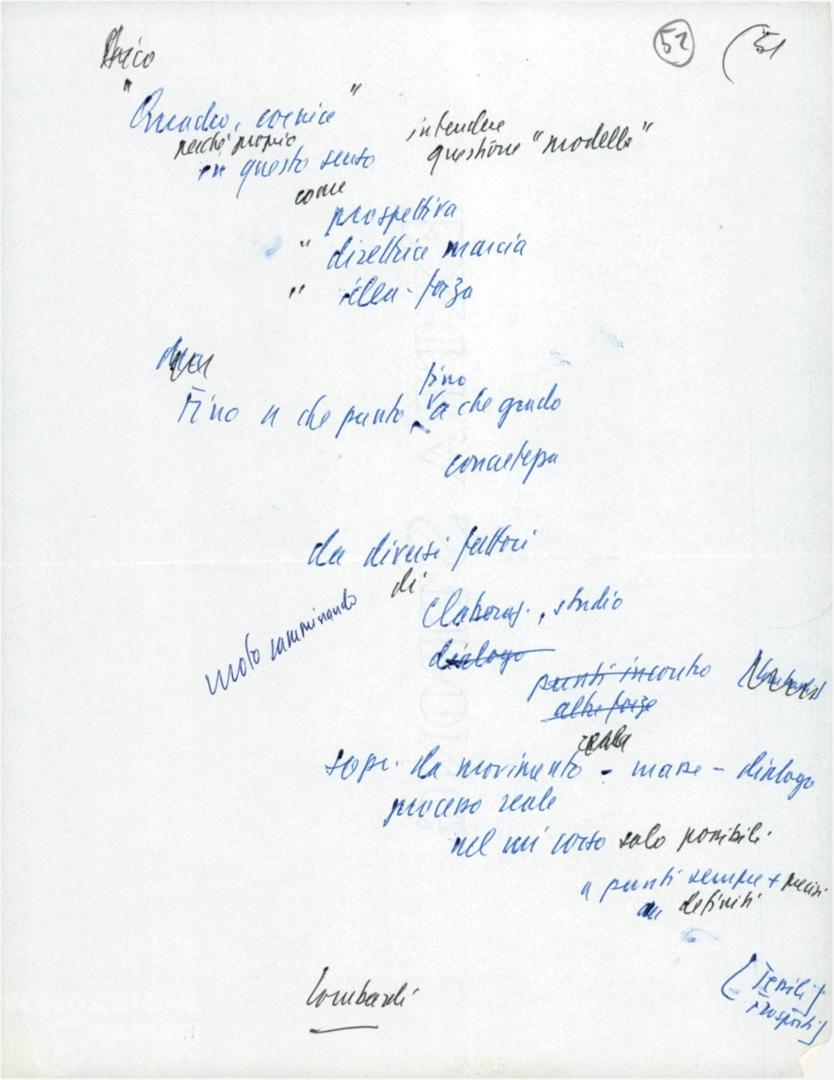 52 (51
"Quadro, cornice"
perché proprio intendere
in questo senso questione "modello"
come
prospettiva
" direttrice marcia
" idea-forza
Fino a che punto, fino a che grado
concretezza
da diversi fattori
di
moto camminando
elaboraz., studio
dialogo
punti incontro
altre forze
reale
sopr. da movimento - masse - dialogo
processo reale
nel cui corso solo possibili
a punti sempre + precisi
definiti
Lombardi
(Tessili)
Trasporti)